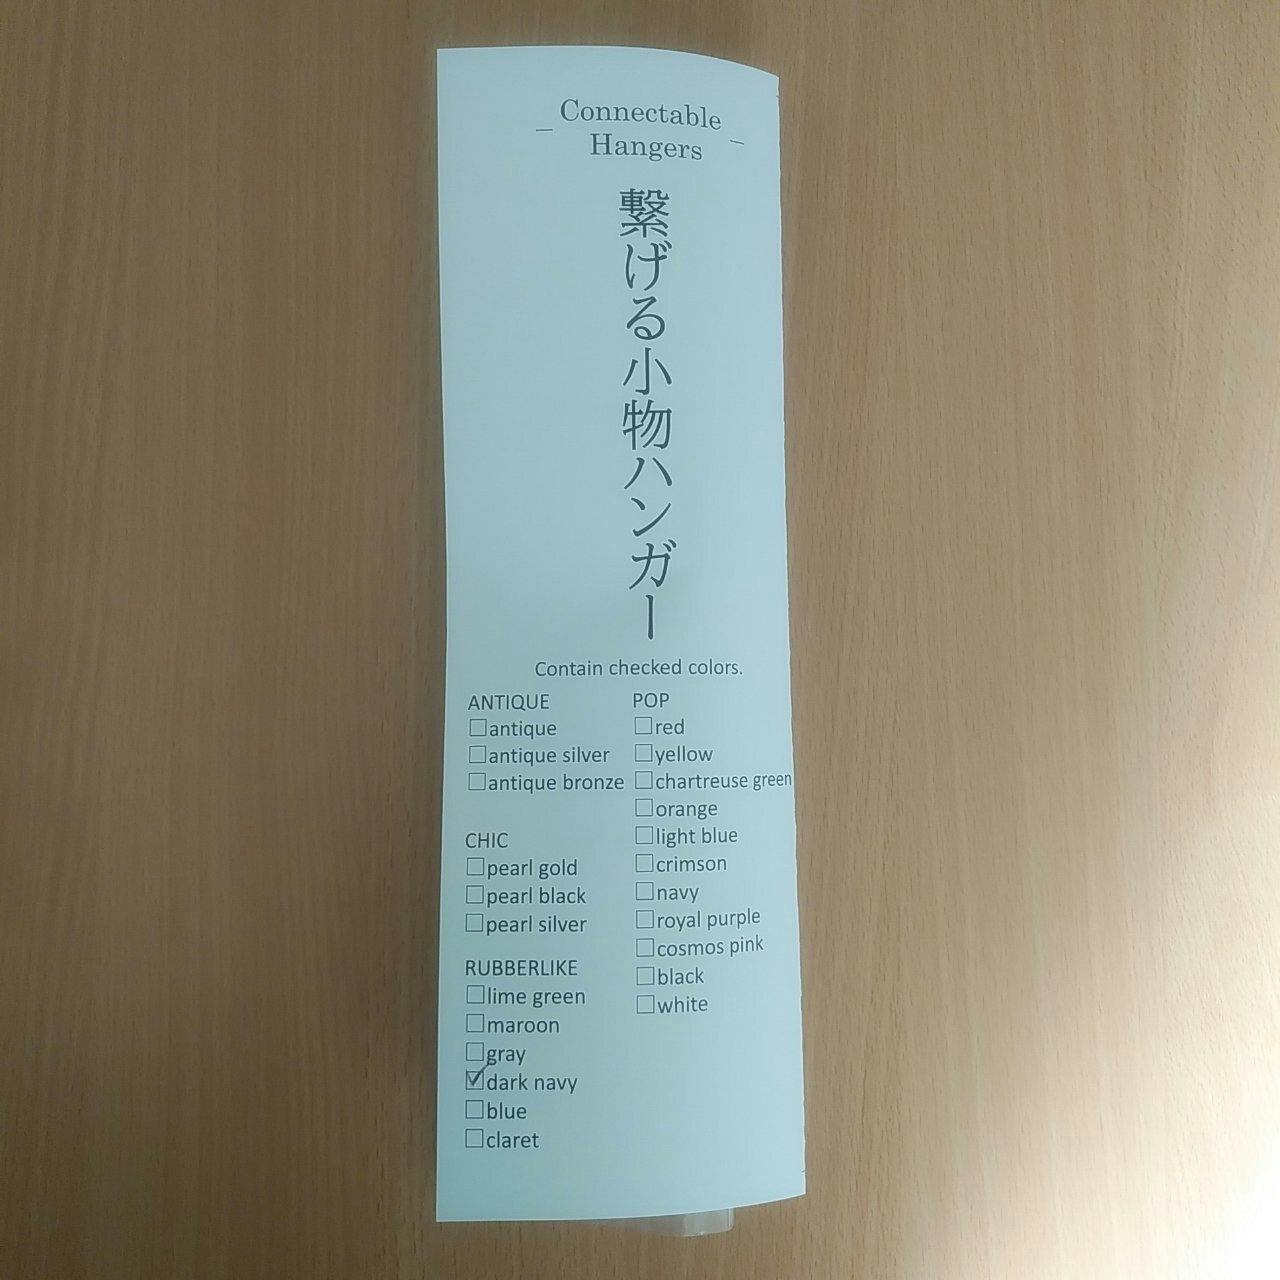 Connectable
Hangers
繋げる小物ハンガー
Contain checked colors.
ANTIQUE
☐antique
☐antique silver
☐antique bronze
CHIC
☐pearl gold
☐pearl black
☐pearl silver
RUBBERLIKE
☐lime green
☐maroon
☐gray
☑dark navy
☐blue
☐claret
POP
☐red
☐yellow
☐chartreuse green
☐orange
☐light blue
☐crimson
☐navy
☐royal purple
☐cosmos pink
☐black
☐white